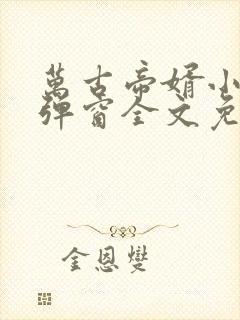 萬古帝婿小
彈窗全文免
金恩燮